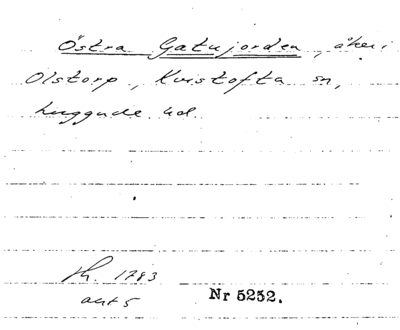 Östra Gatujorden, åker i
Olstorp, Kvistofta sn,
Luggude hd.
sk. 1783
akt 5
Nr 5252.